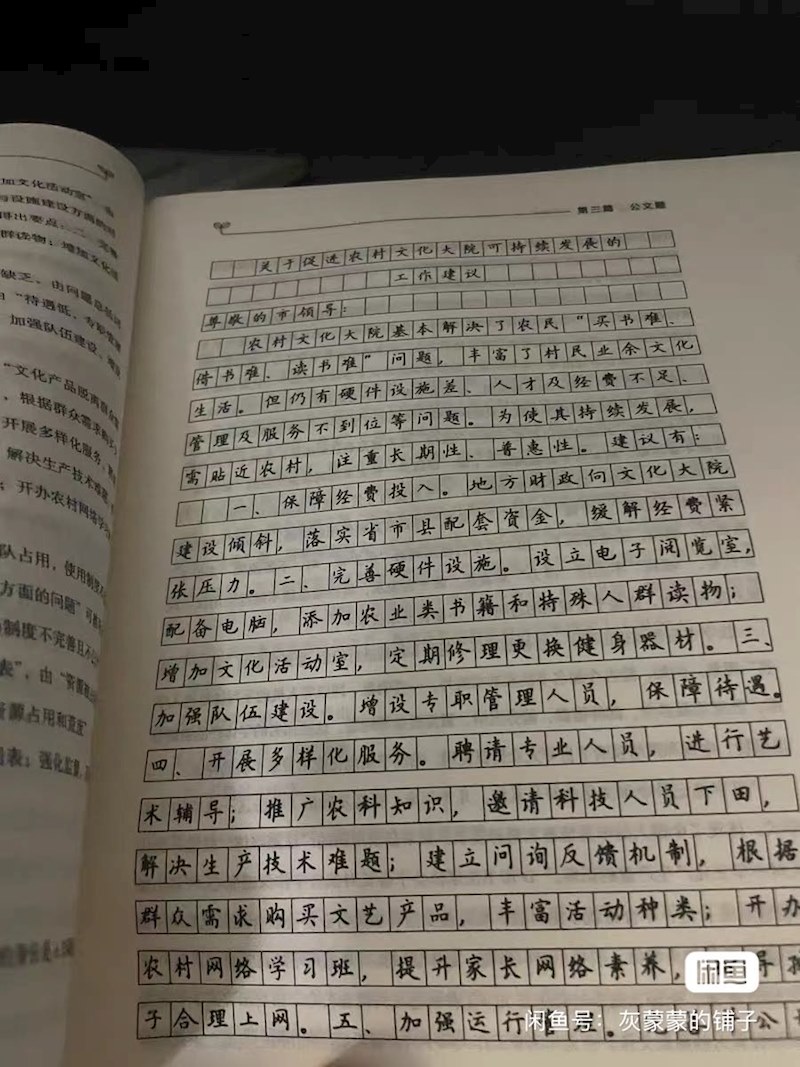 加文化活动室”
与设施建设方面的问
得出要点：二、完善
群读物；增加文化活
缺乏、由问题总结词
“待遇低、专职管理
加强队伍建设。增设
“文化产品脱离群众
根据群众需求购
开展多样化服务。聘
解决生产技术难题
；开办农村网络学
队占用，使用制度
方面的问题”可推
制度不完善且
表”，由“资源
资源占用和
表；强化监督
第三篇 公文题
关于促进农村文化大院可持续发展的
工作建议
尊敬的市领导：
农村文化大院基本解决了农民“买书难、
借书难、读书难”问题，丰富了村民业余文化
生活。但仍有硬件设施差、人才及经费不足、
管理及服务不到位等问题。为使其持续发展，
需贴近农村，注重长期性、普惠性。建议有：
一、保障经费投入。地方财政向文化大院
建设倾斜，落实省市县配套资金，缓解经费紧
张压力。二、完善硬件设施。设立电子阅览室，
配备电脑，添加农业类书籍和特殊人群读物；
增加文化活动室，定期修理更换健身器材。三、
加强队伍建设。增设专职管理人员，保障待遇。
四、开展多样化服务。聘请专业人员，进行艺
术辅导；推广农科知识，邀请科技人员下田，
解决生产技术难题；建立问询反馈机制，根据
群众需求购买文艺产品，丰富活动种类；开办
农村网络学习班，提升家长网络素养，导
子合理上网。五、加强运行
闲鱼
闲鱼号：灰蒙蒙的铺子